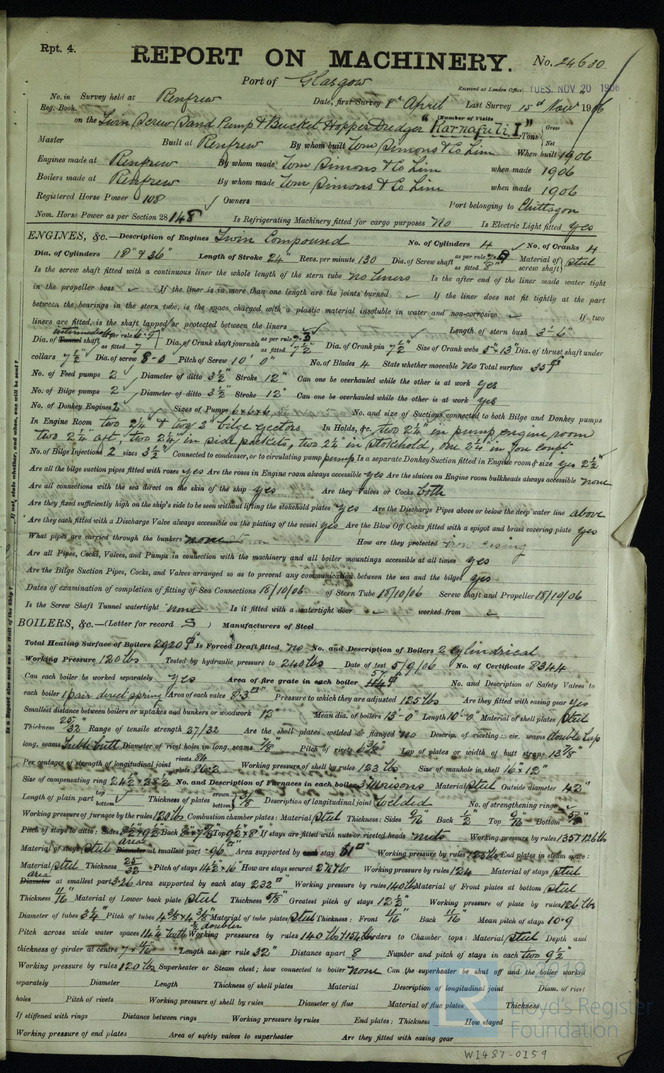 Rpt. 4.
REPORT ON MACHINERY.
No. 24630
Port of Glasgow
Received at London Office TUES. NOV 20 1906
No. in Survey held at Renfrew Date, first Survey 8th April Last Survey 15th Nov 1906
Reg. Book. (Number of Visits
on the Twin Screw Sand Pump & Bucket Hopper Dredger "Karnafuli I" Tons Gross Net
Master Built at Renfrew By whom built Wm Simons & Co Lim When built 1906
Engines made at Renfrew By whom made Wm Simons & Co Lim when made 1906
Boilers made at Renfrew By whom made Wm Simons & Co Lim when made 1906
Registered Horse Power 108 Owners Port belonging to Chittagon
Nom. Horse Power as per Section 28 148 Is Refrigerating Machinery fitted for cargo purposes No Is Electric Light fitted yes
ENGINES, &c.—Description of Engines Twin Compound No. of Cylinders 4 No. of Cranks 4
Dia. of Cylinders 18" & 36" Length of Stroke 24" Revs. per minute 130 Dia. of Screw shaft as per rule as fitted 8" Material of screw shaft steel
Is the screw shaft fitted with a continuous liner the whole length of the stern tube no liners Is the after end of the liner made water tight
in the propeller boss If the liner is in more than one length are the joints burned If the liner does not fit tightly at the part
between the bearings in the stern tube, is the space charged with a plastic material insoluble in water and non-corrosive If two
liners are fitted, is the shaft lapped or protected between the liners Length of stern bush 3'-6"
Dia. of Tunnel shaft as per rule as fitted 7 Dia. of Crank shaft journals as per rule as fitted 7½ Dia. of Crank pin 7½" Size of Crank webs 5"-13" Dia. of thrust shaft under
collars 7½" Dia. of screw 8-0 Pitch of Screw 10' 0" No. of Blades 4 State whether moveable No Total surface 35
No. of Feed pumps 2 Diameter of ditto 3½" Stroke 12" Can one be overhauled while the other is at work yes
No. of Bilge pumps 2 Diameter of ditto 3½" Stroke 12" Can one be overhauled while the other is at work yes
No. of Donkey Engines 2 Sizes of Pumps 6x6x6 No. and size of Suctions connected to both Bilge and Donkey pumps
In Engine Room two 2¼" & two 2" bilge ejectors In Holds, &c. two 2¼" in pump engine room
two 2¼" aft, two 2¼" in side pockets, two 2½" in stokehold, one 2¼" in for compt
No. of Bilge Injections 2 sizes 3½" Connected to condenser, or to circulating pump pump Is a separate Donkey Suction fitted in Engine room & size yes 2½"
Are all the bilge suction pipes fitted with roses yes Are the roses in Engine room always accessible yes Are the sluices on Engine room bulkheads always accessible none
Are all connections with the sea direct on the skin of the ship yes Are they Valves or Cocks both
Are they fixed sufficiently high on the ship's side to be seen without lifting the stokehold plates yes Are the Discharge Pipes above or below the deep water line above
Are they each fitted with a Discharge Valve always accessible on the plating of the vessel yes Are the Blow Off Cocks fitted with a spigot and brass covering plate yes
What pipes are carried through the bunkers none How are they protected
Are all Pipes, Cocks, Valves, and Pumps in connection with the machinery and all boiler mountings accessible at all times yes
Are the Bilge Suction Pipes, Cocks, and Valves arranged so as to prevent any communication between the sea and the bilges yes
Dates of examination of completion of fitting of Sea Connections 18/10/06 of Stern Tube 18/10/06 Screw shaft and Propeller 18/10/06
Is the Screw Shaft Tunnel watertight none Is it fitted with a watertight door worked from
BOILERS, &c.—(Letter for record S) Manufacturers of Steel
Total Heating Surface of Boilers 2920 Is Forced Draft fitted no No. and Description of Boilers 2 cylindrical
Working Pressure 120 lbs Tested by hydraulic pressure to 240 lbs Date of test 5/9/06 No. of Certificate 8344
Can each boiler be worked separately yes Area of fire grate in each boiler 57 No. and Description of Safety Valves to
each boiler 1 pair direct spring Area of each valve 8.3 Pressure to which they are adjusted 125 lbs Are they fitted with easing gear yes
Smallest distance between boilers or uptakes and bunkers or woodwork 12" Mean dia. of boilers 13'-0" Length 10'-0 Material of shell plates Steel
Thickness 25/32 Range of tensile strength 27/32 Are the shell plates welded or flanged no Descrip. of riveting: cir. seams double lap
long. seams treble butt Diameter of rivet holes in long. seams 7/8" Pitch of rivets Lap of plates or width of butt straps 13 7/8"
Per centages of strength of longitudinal joint rivets 84 plates Working pressure of shell by rules 123 lbs Size of manhole in shell 16 x 12"
Size of compensating ring No. and Description of Furnaces in each boiler 3 Morisons Material steel Outside diameter 42"
Length of plain part top bottom Thickness of plates crown bottom 3/8 Description of longitudinal joint welded No. of strengthening rings
Working pressure of furnace by the rules 120 lbs Combustion chamber plates: Material steel Thickness: Sides 9/16 Back ½" Top 9/16" Bottom
Pitch of stays to ditto: Sides Back Top If stays are fitted with nuts or riveted heads nuts Working pressure by rules 135 & 126 lbs
Material of stays steel area at smallest part Area supported by each stay Working pressure by rules 125 lbs End plates in steam space:
Material steel Thickness 25/32 Pitch of stays 14½ x 16" How are stays secured Working pressure by rules 124 Material of stays steel
area at smallest part 3.26 Area supported by each stay 232" Working pressure by rules 140 lbs Material of Front plates at bottom steel
Thickness 11/16" Material of Lower back plate steel Thickness 5/8" Greatest pitch of stays 12½" Working pressure of plate by rules 126 lbs
Diameter of tubes 3¼" Pitch of tubes 4 3/8 x 4 3/8" Material of tube plates steel Thickness: Front 11/16" Back 11/16" Mean pitch of stays 10.9
Pitch across wide water spaces 14½ with ½" doubler Working pressures by rules 140 lbs & 154 lbs Girders to Chamber tops: Material steel Depth and
thickness of girder at centre 7 x Length as per rule 32" Distance apart 8 Number and pitch of stays in each two 9½"
Working pressure by rules 120 lbs Superheater or Steam chest; how connected to boiler none Can the superheater be shut off and the boiler worked
separately Diameter Length Thickness of shell plates Material Description of longitudinal joint Diam. of rivet
holes Pitch of rivets Working pressure of shell by rules Diameter of flue Material of flue plates Thickness
If stiffened with rings Distance between rings Working pressure by rules End plates: Thickness How stayed
Working pressure of end plates Area of safety valves to superheater Are they fitted with easing gear
© 2019
Lloyd's Register
Foundation
W1487-0159